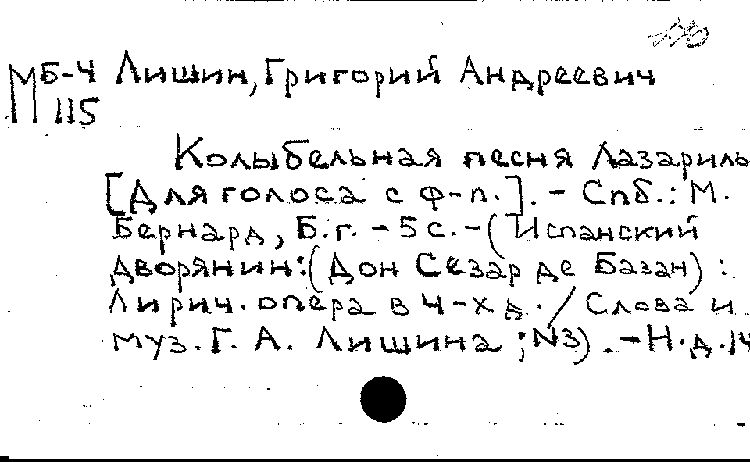 МБ-4 Лишин, Григорий Андреевич
М 115
Колыбельная песня Лазариль
[Для голоса с ф-п.]. - Спб.: М.
Бернард, Б.г. - 5 с. - (Испанский
дворянин: (Дон Сезар де Базан) :
Лирич. опера в 4-х д. / Слова и
муз. Г. А. Лишина ; N3). - Н.д. 14